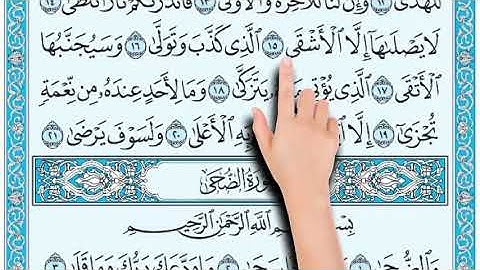 لَلْهُدَىٰ ١٢ وَإِنَّ لَنَا لَلْآخِرَةَ وَالْأُولَىٰ ١٣ فَأَنذَرْتُكُمْ نَارًا تَلَظَّىٰ ١٤
لَا يَصْلَىٰهَا إِلَّا الْأَشْقَى ١٥ الَّذِي كَذَّبَ وَتَوَلَّىٰ ١٦ وَسَيُجَنَّبُهَا
الْأَتْقَى ١٧ الَّذِي يُؤْتِي يَتَزَكَّىٰ ١٨ وَمَا لِأَحَدٍ عِندَهُ مِن نِّعْمَةٍ
تُجْزَىٰ ١٩ إِلَّا الْأَعْلَىٰ ٢٠ وَلَسَوْفَ يَرْضَىٰ ٢١
سُورَةُ الضُّحَىٰ
بِسْمِ اللَّهِ الرَّحْمَٰنِ الرَّحِيمِ
وَالضُّحَىٰ ١ ٢ مَا وَدَّعَكَ رَبُّكَ وَمَا قَلَىٰ ٣